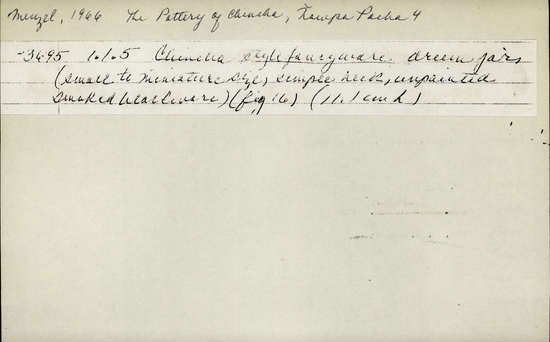 Menzel, 1966 The Pottery of Chincha, Ñawpa Pacha 4
-3695 1.1.5 Chincha style fancyware. drum jars
(small to miniature size, simple neck, unpainted
smoked blackware) (fig 16) (11.1 cm h)